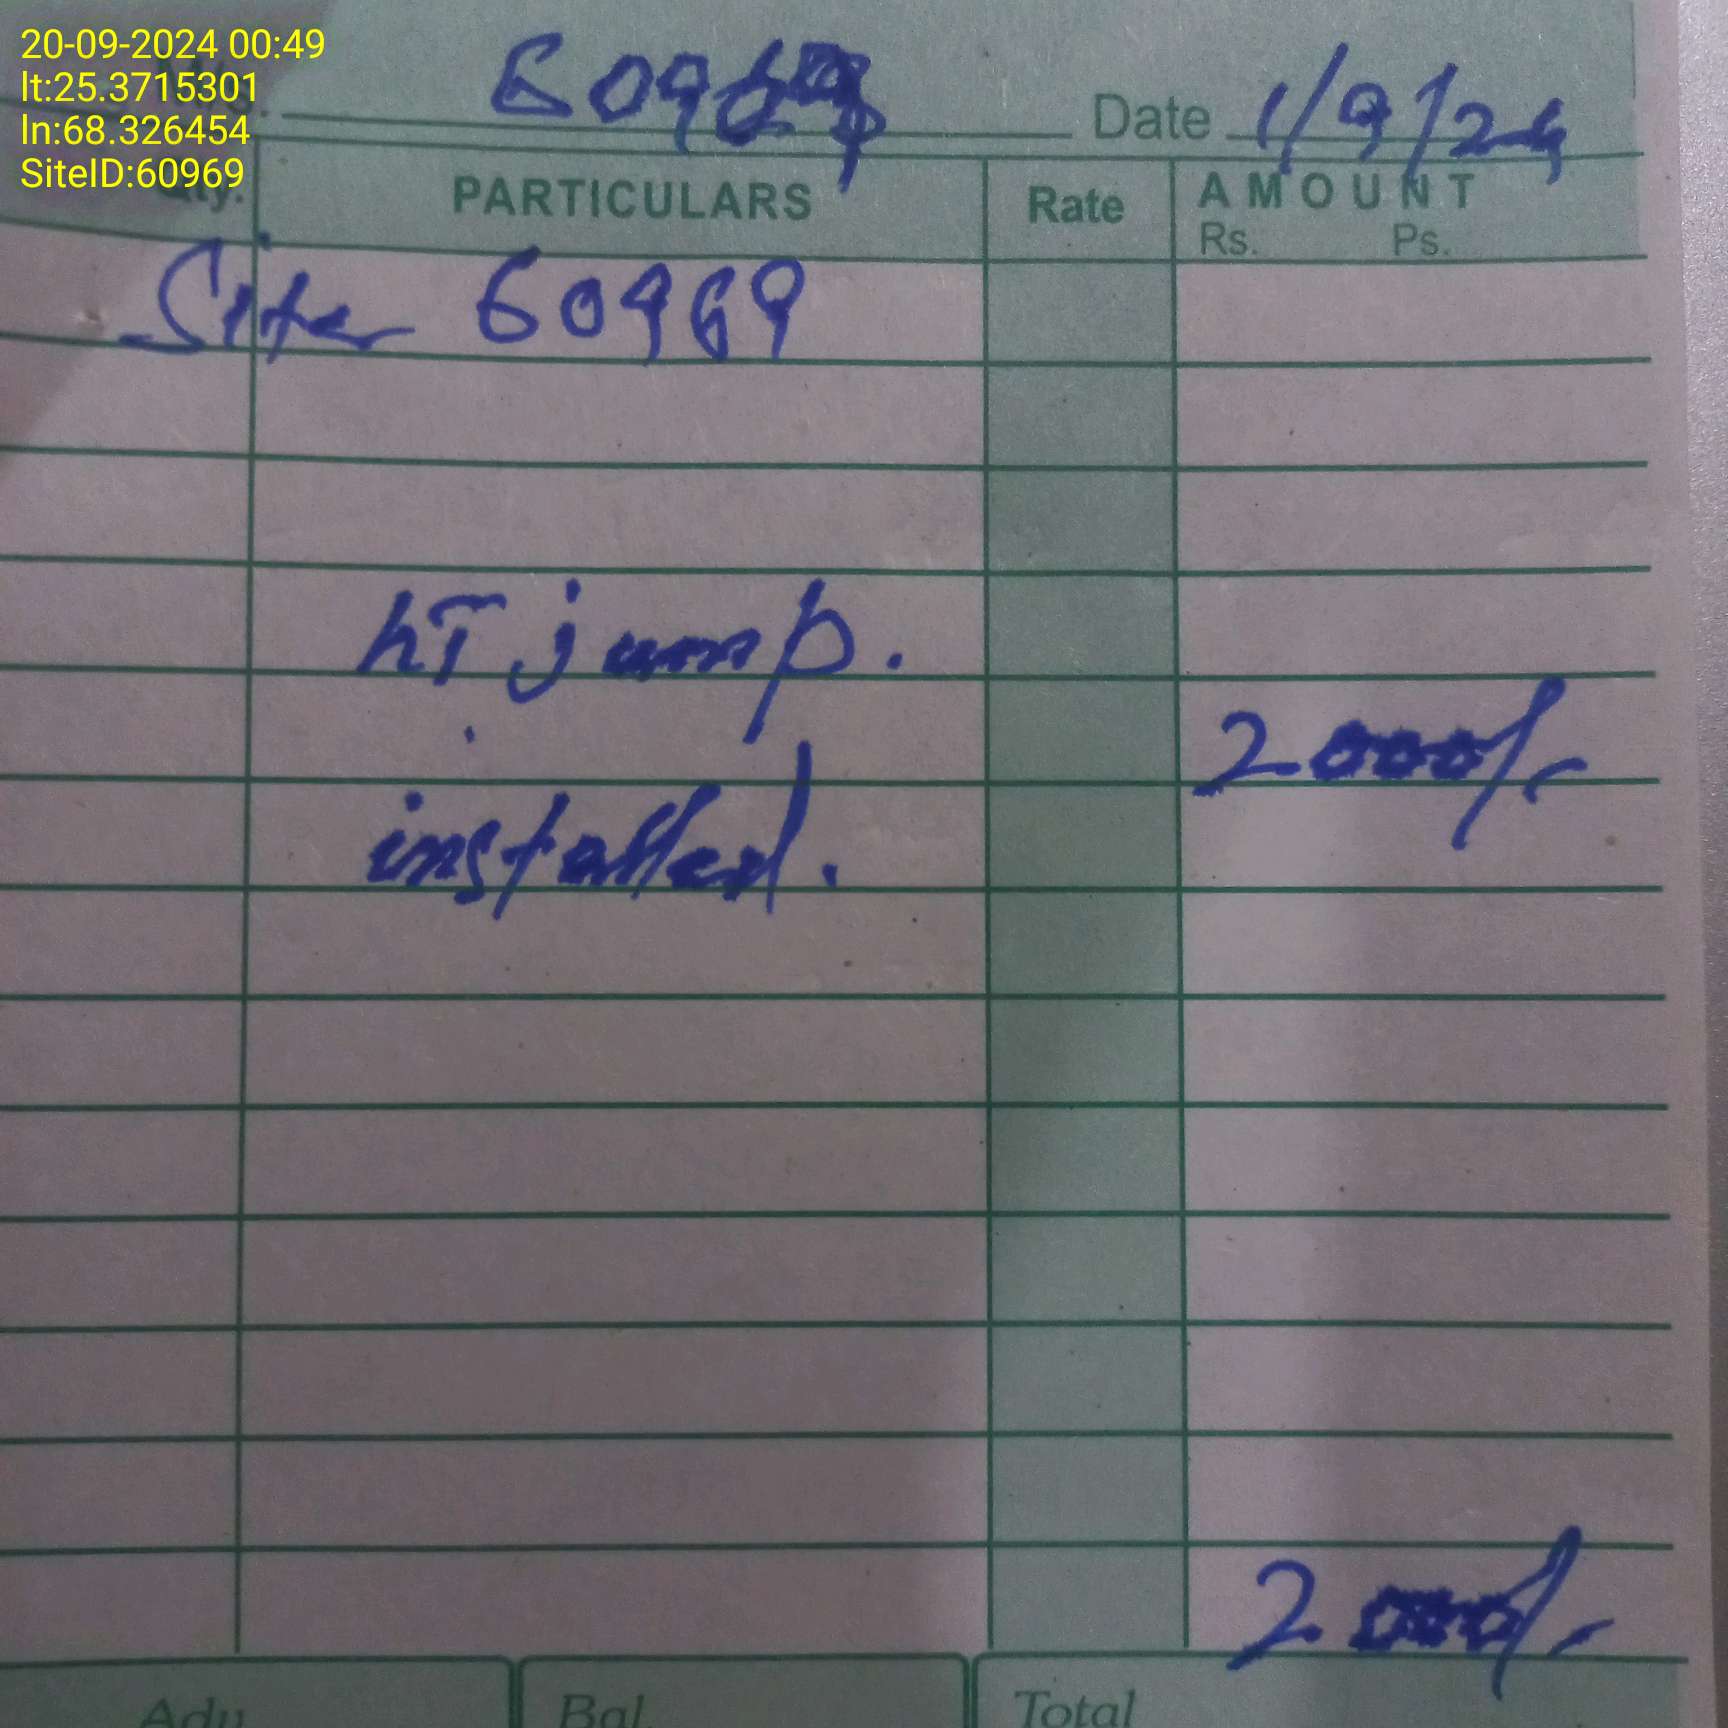 20-09-2024 00:49
lt:25.3715301
ln:68.326454
SiteID:60969
60969 Date 1/9/24
Qty. PARTICULARS Rate AMOUNT
Rs. Ps.
Site 60969
hT jump.
2000/-
installed.
2000/-
Adv Bal Total